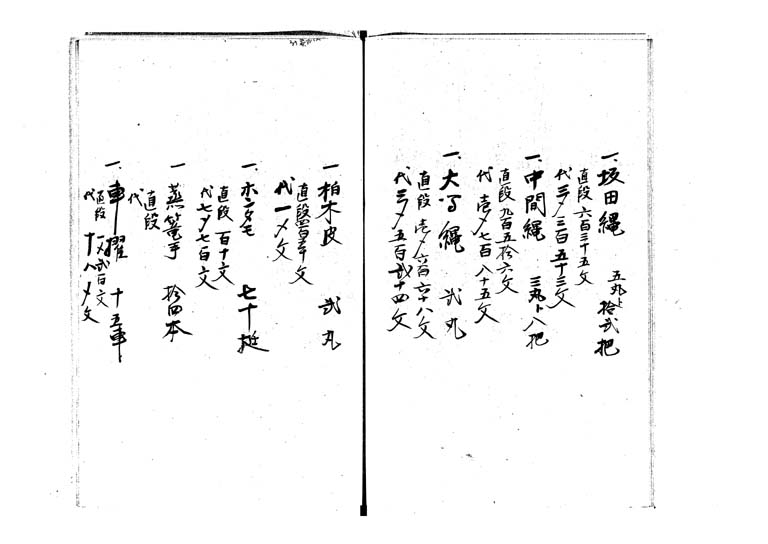 一、坂田縄 五丸ト拾弐把
直段 六百三十五文
代三〆三百五十三文
一、中間縄 三丸ト八把
直段 九百五拾六文
代 壱〆七百八十五文
一、大縄 弐丸
直段 壱〆六百六十八文
代三〆五百弐十四文
一 柏木皮 弐丸
直段四百五十文
代一〆文
一、ホンタモ 七十挺
直段 百十文
代七〆七百文
一 蒸籠手 拾四本
直段
代
一、車櫂 十五車
直段 一〆弐百文
代 十八〆文